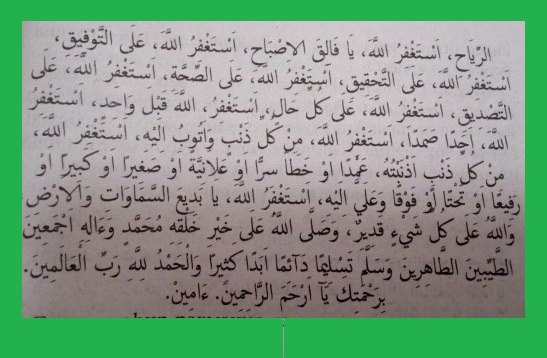 الرِّيَاحِ، اَسْتَغْفِرُ اللَّهَ، يَا فَالِقَ الاِصْبَاحِ، اَسْتَغْفِرُ اللَّهَ، عَلَى التَّوْفِيقِ،
اَسْتَغْفِرُ اللَّهَ، عَلَى التَّحْقِيقِ، اَسْتَغْفِرُ اللَّهَ، عَلَى الصِّحَّةِ، اَسْتَغْفِرُ اللَّهَ، عَلَى
التَّصْدِيقِ، اَسْتَغْفِرُ اللَّهَ، عَلَى كُلِّ حَالٍ، اَسْتَغْفِرُ، اللَّهَ قَبْلَ وَاحِدٍ، اَسْتَغْفِرُ
اللَّهَ، اَحَدًا صَمَدًا، اَسْتَغْفِرُ اللَّهَ، مِنْ كُلِّ ذَنْبٍ وَاَتُوبُ اِلَيْهِ، اَسْتَغْفِرُ اللَّهَ،
مِنْ كُلِّ ذَنْبٍ اَذْنَبْتُهُ، عَمْدًا اَوْ خَطَأً سِرًّا اَوْ عَلاَنِيَةً اَوْ صَغِيرًا اَوْ كَبِيرًا اَوْ
رَفِيعًا اَوْ تَحْتًا اَوْ فَوْقًا وَعَلَيَّ اِلَيْهِ، اَسْتَغْفِرُ اللَّهَ، يَا بَدِيعَ السَّمَاوَاتِ وَالاَرْضِ
وَاللَّهُ عَلَى كُلِّ شَيْءٍ قَدِيرٌ، وَصَلَّى اللَّهُ عَلَى خَيْرِ خَلْقِهِ مُحَمَّدٍ وَءَالِهِ اَجْمَعِينَ
الطَّيِّبِينَ الطَّاهِرِينَ وَسَلَّمَ تَسْلِيمًا دَآئِمًا اَبَدًا كَثِيرًا وَالْحَمْدُ لِلَّهِ رَبِّ الْعَالَمِينَ.
بِرَحْمَتِكَ يَآ اَرْحَمَ الرَّاحِمِينَ. ءَامِينْ.